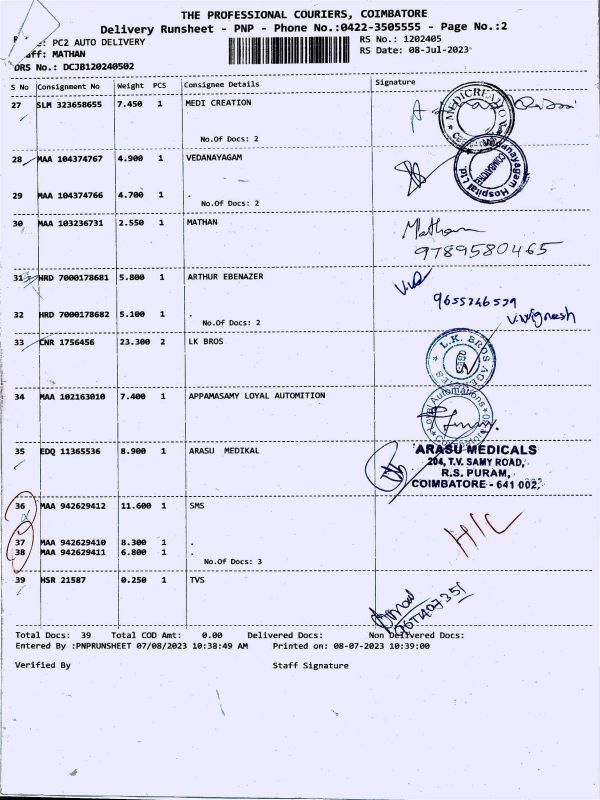 THE PROFESSIONAL COURIERS, COIMBATORE
Delivery Runsheet - PNP - Phone No.:0422-3505555 - Page No.:2
: PC2 AUTO DELIVERY
RS No.: 1202405
aff: MATHAN
RS Date: 08-Jul-2023
DRS No.: DCJB120240502
S No Consignment No Weight PCS Consignee Details Signature
27 SLM 323658655 7.450 1 MEDI CREATION
MEDICREATION
No.Of Docs: 2
28 MAA 104374767 4.900 1 VEDANAYAGAM
Vedanayagam Hospital Pvt.
COIMBATORE
29 MAA 104374766 4.700 1 .
No.Of Docs: 2
30 MAA 103236731 2.550 1 MATHAN
Mathan
9789580465
31 HRD 7000178681 5.800 1 ARTHUR EBENAZER
9655246529
V.Vignesh
32 HRD 7000178682 5.100 1 .
No.Of Docs: 2
33 CNR 1756456 23.300 2 LK BROS
L.K. BROS AGENCIES
34 MAA 102163010 7.400 1 APPAMASAMY LOYAL AUTOMITION
Loyal Automations
35 EDQ 11365536 8.900 1 ARASU MEDIKAL
ARASU MEDICALS
204, T.V. SAMY ROAD,
R.S. PURAM,
COIMBATORE - 641 002.
36 MAA 942629412 11.600 1 SMS
H/C
37 MAA 942629410 8.300 1 .
38 MAA 942629411 6.800 1 .
No.Of Docs: 3
39 HSR 21587 0.250 1 TVS
Total Docs: 39 Total COD Amt: 0.00 Delivered Docs: Non Delivered Docs:
Entered By :PNPRUNSHEET 07/08/2023 10:38:49 AM Printed on: 08-07-2023 10:39:00
Verified By Staff Signature